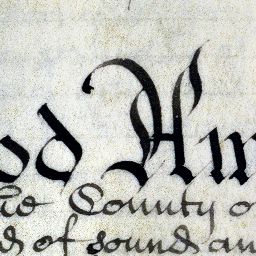 od Am
he County o
d of sound an